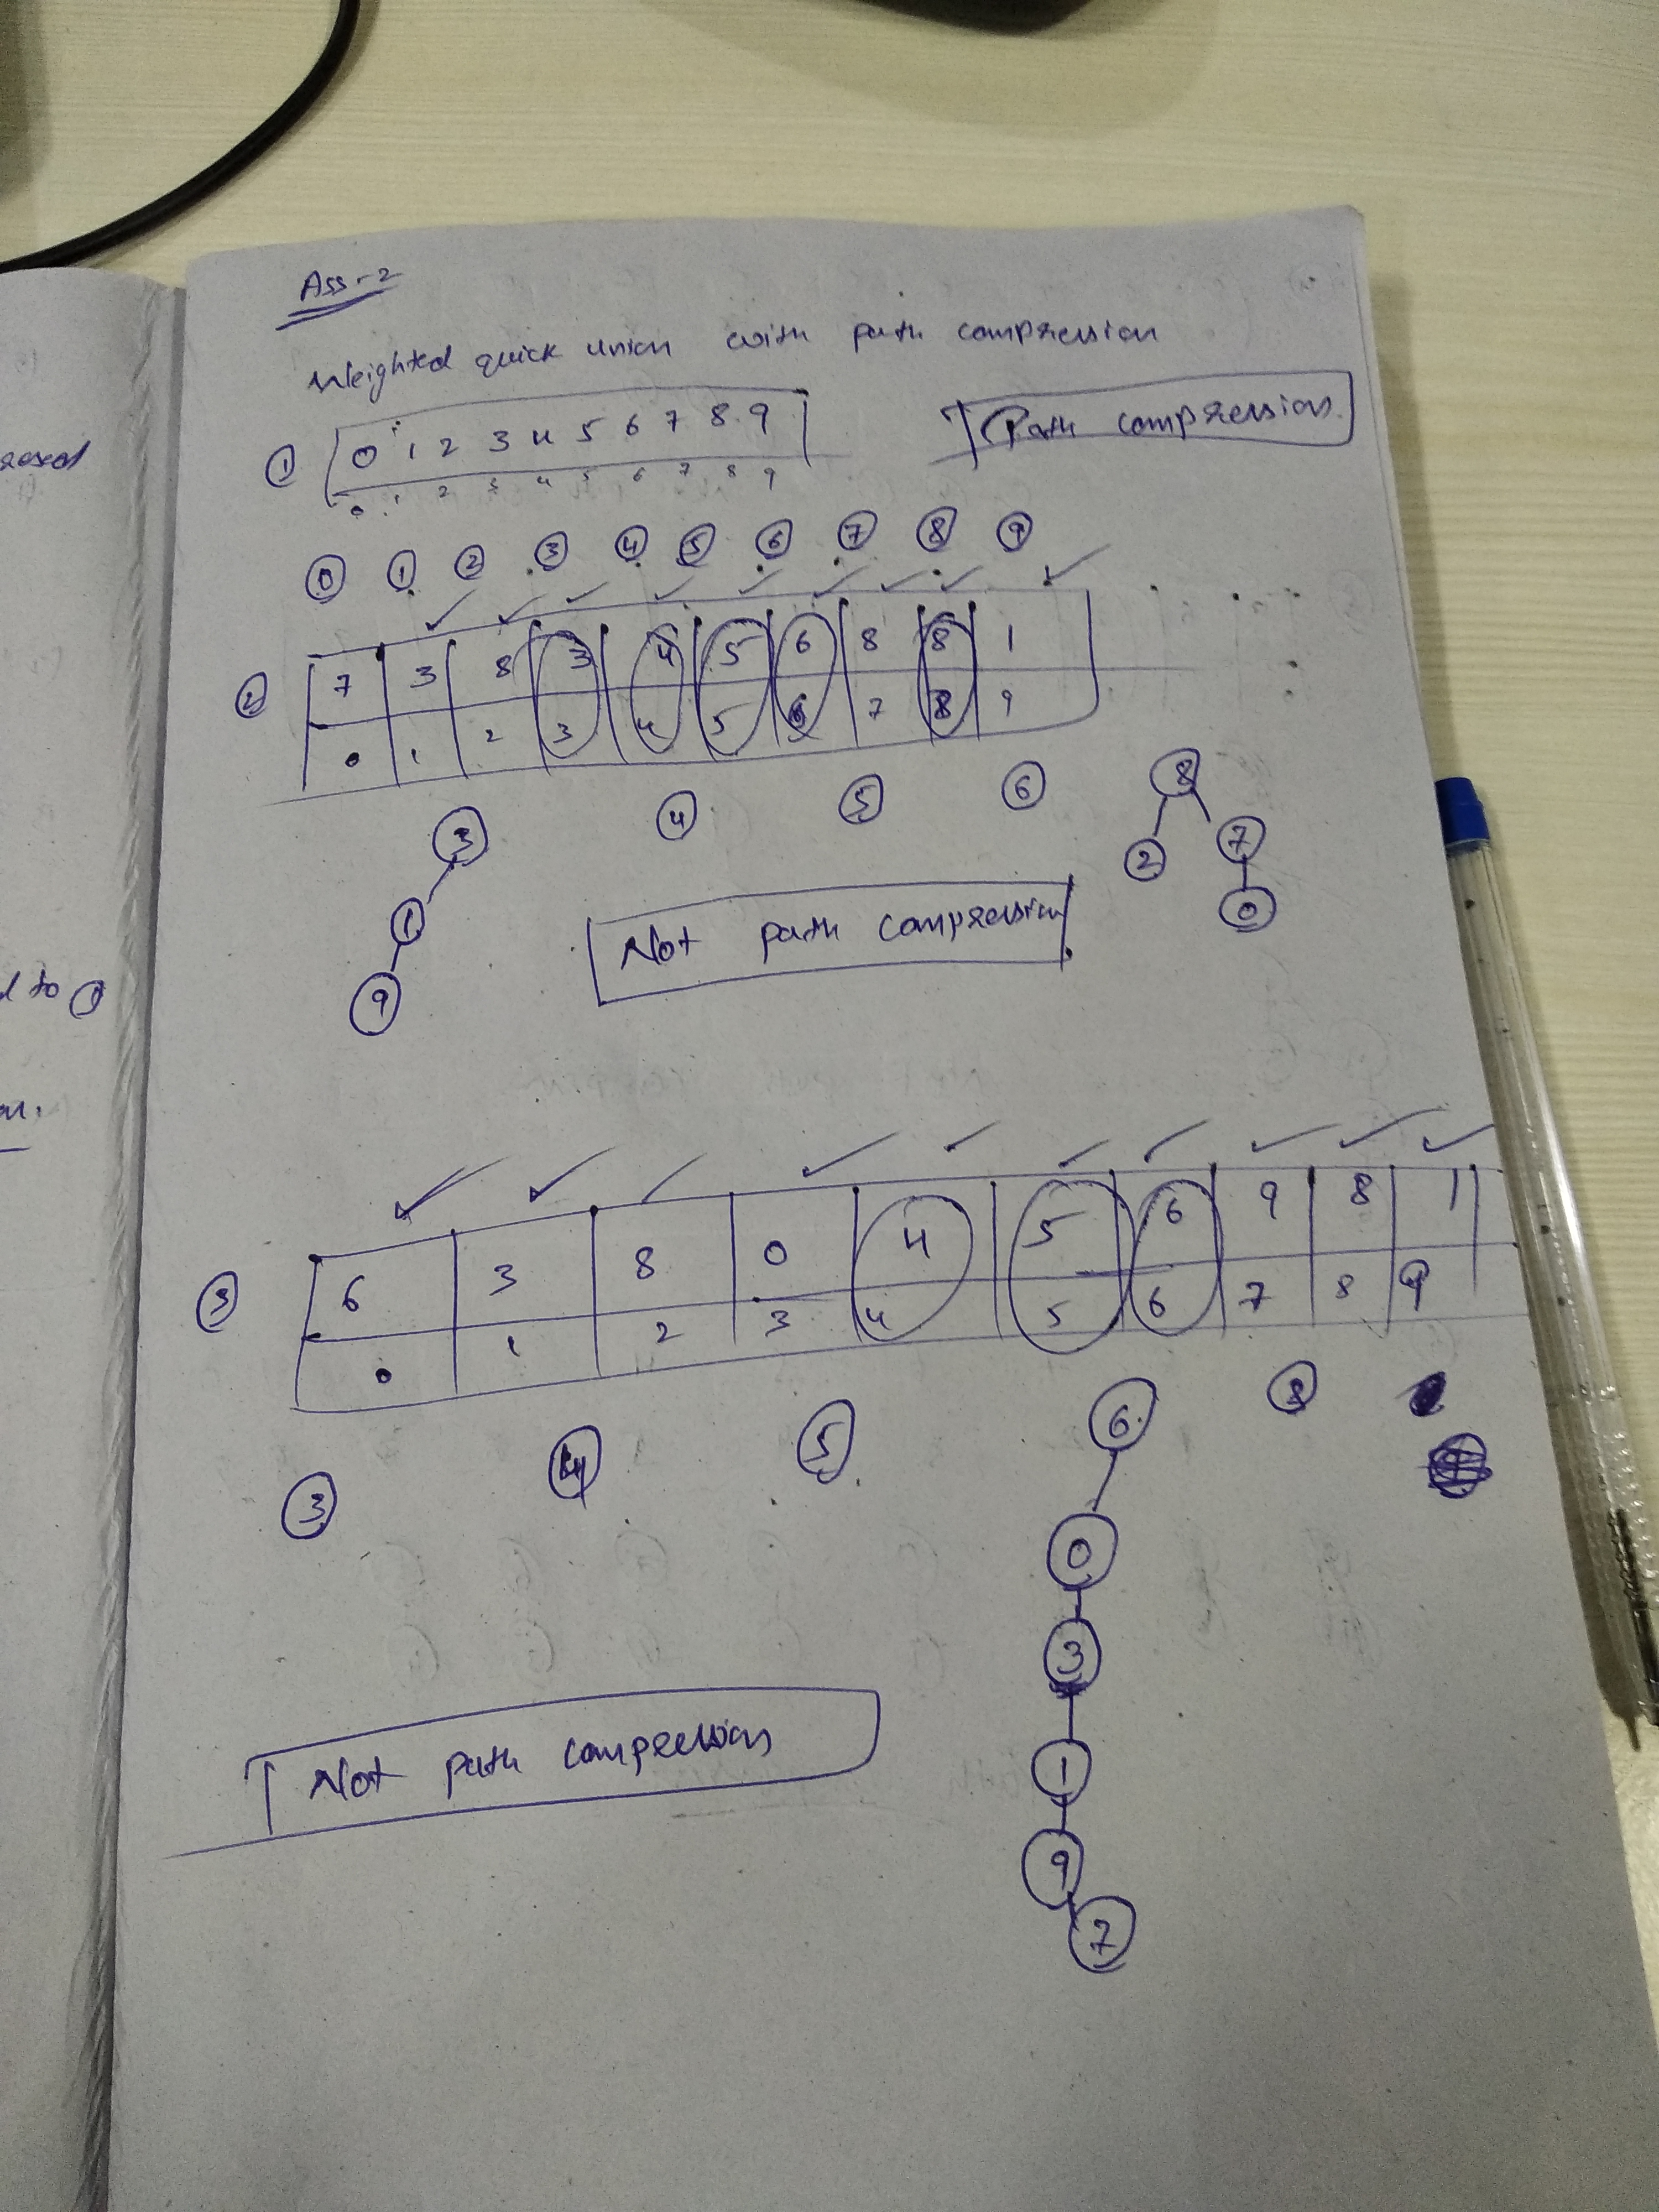 Ass-2
Weighted quick union with path compression
① 0 1 2 3 4 5 6 7 8 9
0 1 2 3 4 5 6 7 8 9
Path compression
0 1 2 3 4 5 6 7 8 9
② 7 3 8 3 4 5 6 8 8 1
0 1 2 3 4 5 6 7 8 9
3 4 5 6 8
2 7
1 0
9
Not path compression
③ 6 3 8 0 4 5 6 9 8 1
0 1 2 3 4 5 6 7 8 9
3 4 5 6 8
0
3
1
9
7
Not path compression
d to ①